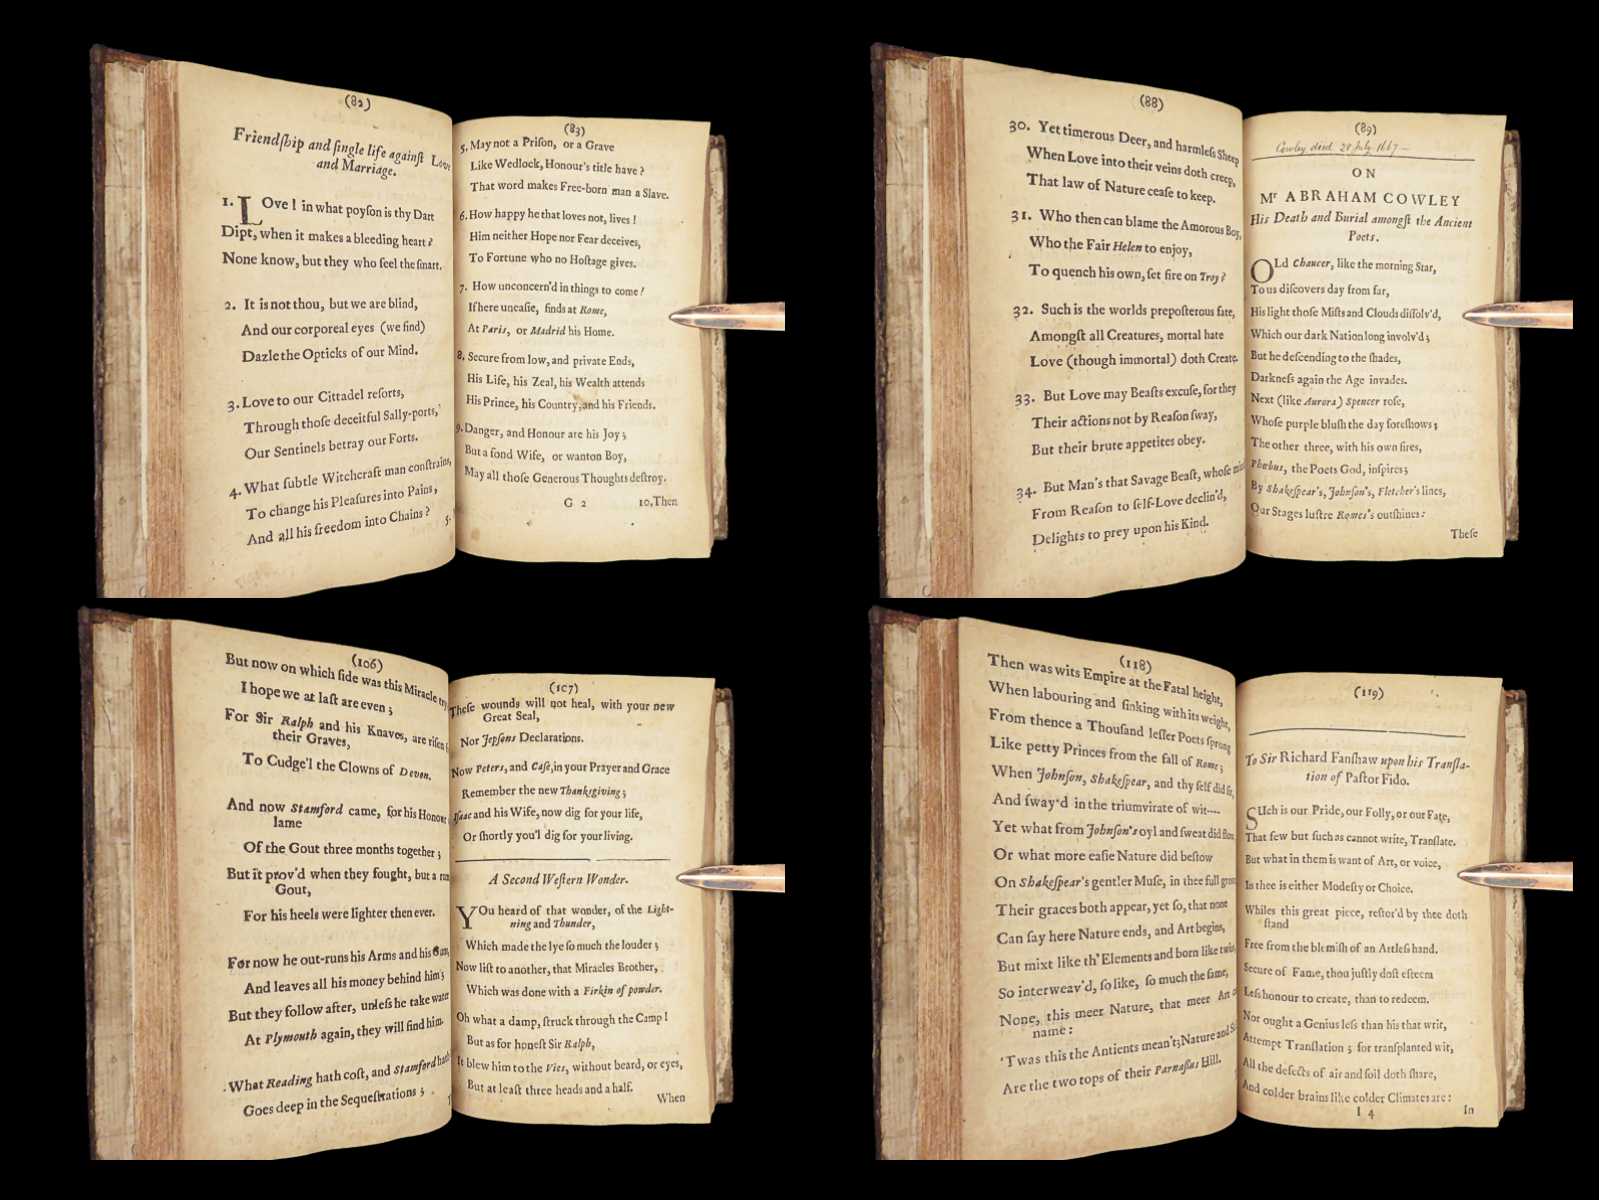 (82)
Friendſhip and ſingle life againſt Love
and Marriage.
1. LOve ! in what poyſon is thy Dart
Dipt, when it makes a bleeding heart ?
None know, but they who feel the ſmart.
2. It is not thou, but we are blind,
And our corporeal eyes (we find)
Dazle the Opticks of our Mind.
3. Love to our Cittadel reſorts,
Through thoſe deceitful Sally-ports,
Our Sentinels betray our Forts.
4. What ſubtle Witchcraft man conſtrains,
To change his Pleaſures into Pains,
And all his freedom into Chains ?
5.
(83)
5. May not a Priſon, or a Grave
Like Wedlock, Honour's title have ?
That word makes Free-born man a Slave.
6. How happy he that loves not, lives !
Him neither Hope nor Fear deceives,
To Fortune who no Hoſtage gives.
7. How unconcern'd in things to come !
If here uneaſie, finds at Rome,
At Paris, or Madrid his Home.
8. Secure from low, and private Ends,
His Life, his Zeal, his Wealth attends
His Prince, his Country, and his Friends.
9. Danger, and Honour are his Joy ;
But a fond Wife, or wanton Boy,
May all thoſe Generous Thoughts deſtroy.
G 2 10. Then
(88)
30. Yet timerous Deer, and harmleſs Sheep
When Love into their veins doth creep,
That law of Nature ceaſe to keep.
31. Who then can blame the Amorous Boy,
Who the Fair Helen to enjoy,
To quench his own, ſet fire on Troy ?
32. Such is the worlds prepoſterous fate,
Amongſt all Creatures, mortal hate
Love (though immortal) doth Create.
33. But Love may Beaſts excuſe, for they
Their actions not by Reaſon ſway,
But their brute appetites obey.
34. But Man's that Savage Beaſt, whoſe mind
From Reaſon to ſelf-Love declin'd,
Delights to prey upon his Kind.
(89)
Cowley died 28 July 1667 —
ON
Mr ABRAHAM COWLEY
His Death and Burial amongſt the Ancient
Poets.
OLd Chaucer, like the morning Star,
To us diſcovers day from far,
His light thoſe Miſts and Clouds diſſolv'd,
Which our dark Nation long involv'd ;
But he deſcending to the ſhades,
Darkneſs again the Age invades.
Next (like Aurora) Spencer roſe,
Whoſe purple bluſh the day foreſhows ;
The other three, with his own fires,
Phœbus, the Poets God, inſpires ;
By Shakeſpear's, Johnſon's, Fletcher's lines,
Our Stages luſtre Romes's outſhines :
Theſe
(106)
But now on which ſide was this Miracle try
I hope we at laſt are even ;
For Sir Ralph and his Knaves, are riſen
their Graves,
To Cudge'l the Clowns of Devon.
And now Stamford came, for his Honour
lame
Of the Gout three months together ;
But it prov'd when they fought, but a run
Gout,
For his heels were lighter then ever.
For now he out-runs his Arms and his Guns,
And leaves all his money behind him ;
But they follow after, unleſs he take water
At Plymouth again, they will find him.
What Reading hath coſt, and Stamford hath
Goes deep in the Sequeſtrations ;
(107)
Theſe wounds will not heal, with your new
Great Seal,
Nor Jepſons Declarations.
Now Peters, and Caſe, in your Prayer and Grace
Remember the new Thankſgiving ;
Iſaac and his Wife, now dig for your life,
Or ſhortly you'l dig for your living.
A Second Weſtern Wonder.
YOu heard of that wonder, of the Light-
ning and Thunder,
Which made the lye ſo much the louder ;
Now liſt to another, that Miracles Brother,
Which was done with a Firkin of powder.
Oh what a damp, ſtruck through the Camp !
But as for honeſt Sir Ralph,
It blew him to the Vies, without beard, or eyes,
But at leaſt three heads and a half.
When
(118)
Then was wits Empire at the Fatal height,
When labouring and ſinking with its weight,
From thence a Thouſand leſſer Poets ſprung
Like petty Princes from the fall of Rome ;
When Johnſon, Shakeſpear, and thy ſelf did ſit,
And ſway'd in the triumvirate of wit----
Yet what from Johnſon's oyl and ſweat did flow,
Or what more eaſie Nature did beſtow
On Shakeſpear's gentler Muſe, in thee full grown
Their graces both appear, yet ſo, that none
Can ſay here Nature ends, and Art begins,
But mixt like th' Elements and born like twins,
So interweav'd, ſo like, ſo much the ſame,
None, this meer Nature, that meer Art
name :
'Twas this the Antients mean't; Nature and Sk
Are the two tops of their Parnaſſus Hill.
(119)
To Sir Richard Fanſhaw upon his Tranſla-
tion of Paſtor Fido.
SUch is our Pride, our Folly, or our Fate,
That few but ſuch as cannot write, Tranſlate.
But what in them is want of Art, or voice,
In thee is either Modeſty or Choice.
Whiles this great piece, reſtor'd by thee doth
ſtand
Free from the blemiſh of an Artleſs hand.
Secure of Fame, thou juſtly doſt eſteem
Leſs honour to create, than to redeem.
Nor ought a Genius leſs than his that writ,
Attempt Tranſlation ; for tranſplanted wit,
All the defects of air and ſoil doth ſhare,
And colder brains like colder Climates are :
I 4 In